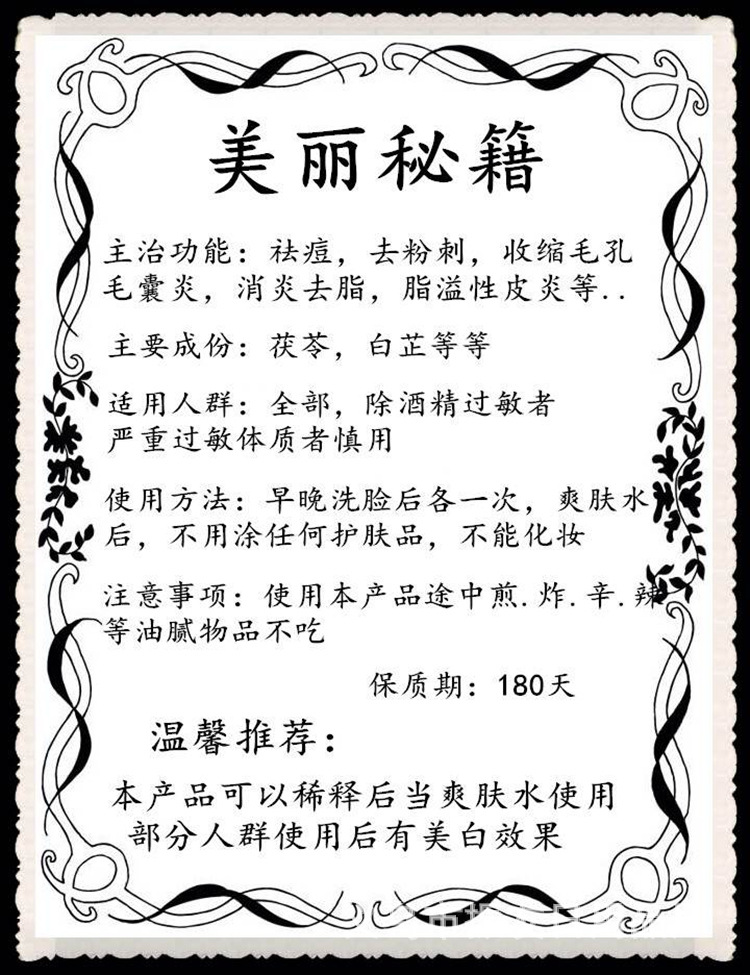 美丽秘籍
主治功能：祛痘，去粉刺，收缩毛孔
毛囊炎，消炎去脂，脂溢性皮炎等..
主要成份：茯苓，白芷等等
适用人群：全部，除酒精过敏者
严重过敏体质者慎用
使用方法：早晚洗脸后各一次，爽肤水
后，不用涂任何护肤品，不能化妆
注意事项：使用本产品途中煎.炸.辛.辣
等油腻物品不吃
保质期：180天
温馨推荐：
本产品可以稀释后当爽肤水使用
部分人群使用后有美白效果